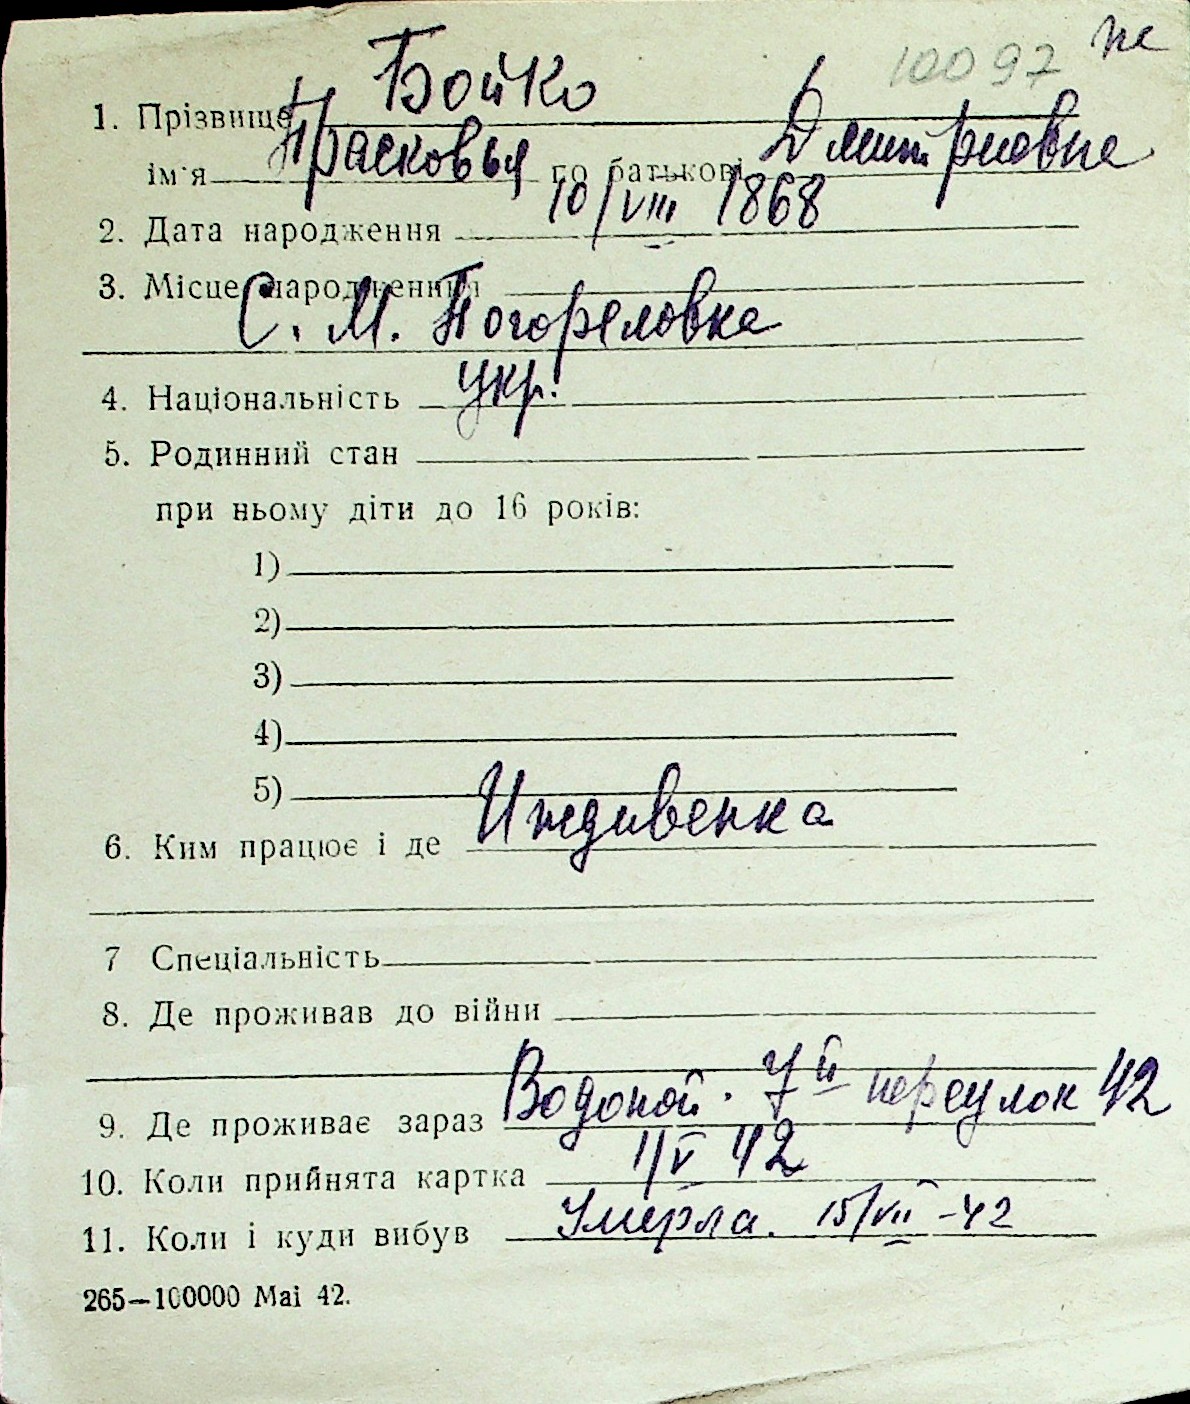 10097 не
1. Прізвище Бойко
ім'я Прасковья по батькові Дмитриовна
2. Дата народження 10/VIII 1868
3. Місце народження
С. М. Погореловка
4. Національність укр.
5. Родинний стан
при ньому діти до 16 років:
1)
2)
3)
4)
5)
6. Ким працює і де Иждивенка
7 Спеціальність
8. Де проживав до війни
9. Де проживає зараз Водопой. 7й переулок 42
10. Коли прийнята картка 1/V 42
11. Коли і куди вибув Умерла. 15/VII-42
265—100000 Маі 42.